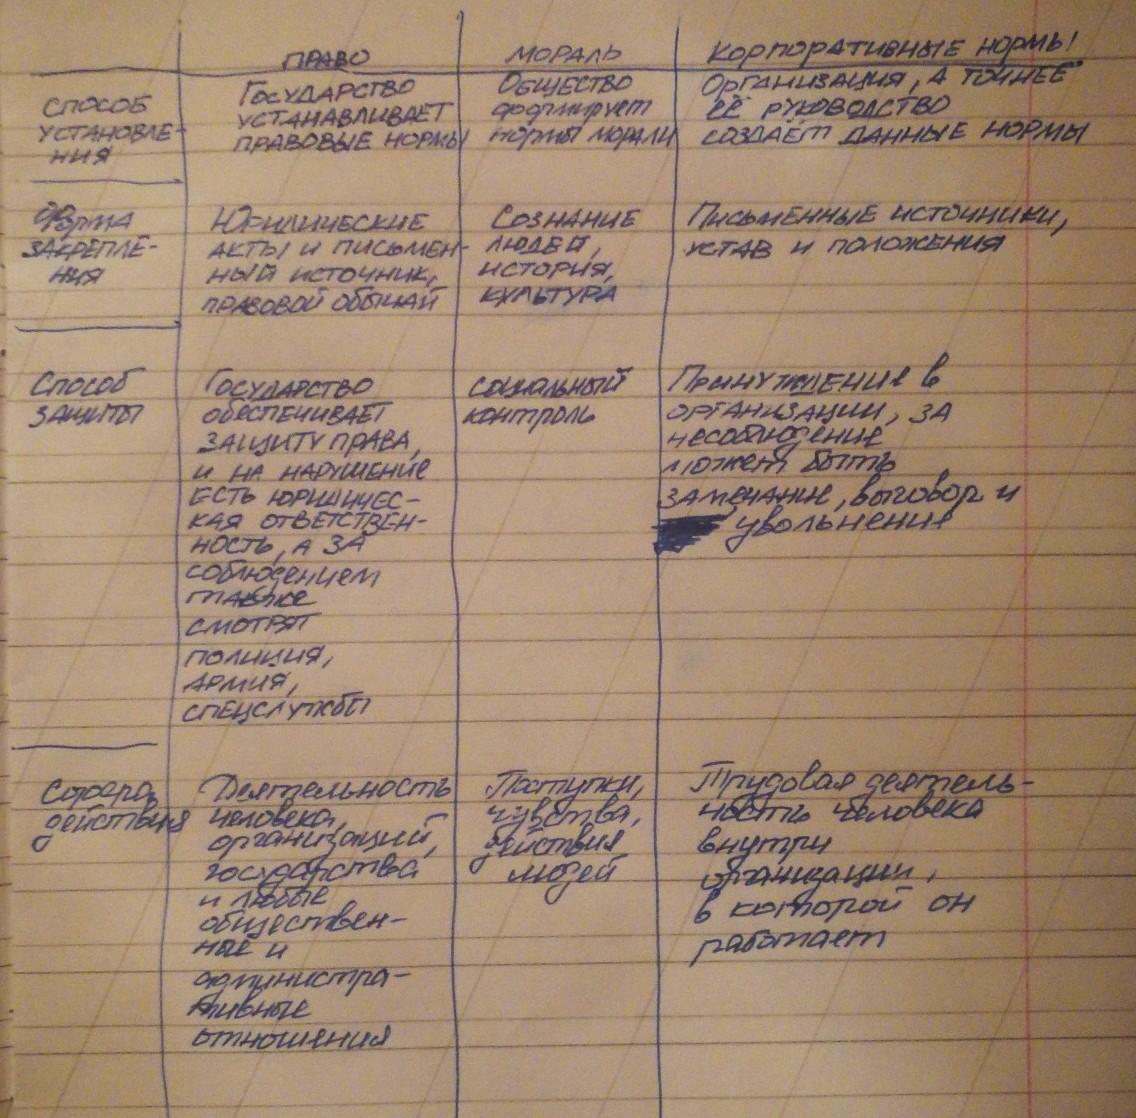 ПРАВО
МОРАЛЬ
КОРПОРАТИВНЫЕ НОРМЫ
СПОСОБ
УСТАНОВЛЕ-
НИЯ
ГОСУДАРСТВО
УСТАНАВЛИВАЕТ
ПРАВОВЫЕ НОРМЫ
ОБЩЕСТВО
формирует
НОРМЫ МОРАЛИ
ОРГАНИЗАЦИЯ, А ТОЧНЕЕ
ЕЁ РУКОВОДСТВО
СОЗДАЕТ ДАННЫЕ НОРМЫ
ФОРМА
ЗАКРЕПЛЕ-
НИЯ
ЮРИДИЧЕСКИЕ
АКТЫ И ПИСЬМЕН-
НЫЙ ИСТОЧНИК,
ПРАВОВОЙ ОБЫЧАЙ
СОЗНАНИЕ
ЛЮДЕЙ,
ИСТОРИЯ,
КУЛЬТУРА
ПИСЬМЕННЫЕ ИСТОЧНИКИ,
УСТАВ И ПОЛОЖЕНИЯ
СПОСОБ
ЗАЩИТЫ
ГОСУДАРСТВО
ОБЕСПЕЧИВАЕТ
ЗАЩИТУ ПРАВА,
И НА НАРУШЕНИЕ
ЕСТЬ ЮРИДИЧЕС-
КАЯ ОТВЕТСТВЕН-
НОСТЬ, А ЗА
СОБЛЮДЕНИЕМ
также
СМОТРЯТ
ПОЛИЦИЯ,
АРМИЯ,
СПЕЦСЛУЖБЫ
СОЦИАЛЬНЫЙ
КОНТРОЛЬ
ПРИНУЖДЕНИЕ В
ОРГАНИЗАЦИИ, ЗА
несоблюдение
может быть
ЗАМЕЧАНИЕ, выговор и
увольнение
Сфера
действия
Деятельность
человека,
организаций,
государства
и любые
обществен-
ные и
администра-
тивные
отношения
Поступки,
чувства,
действия
людей
Трудовая деятель-
ность человека
внутри
организации,
в которой он
работает